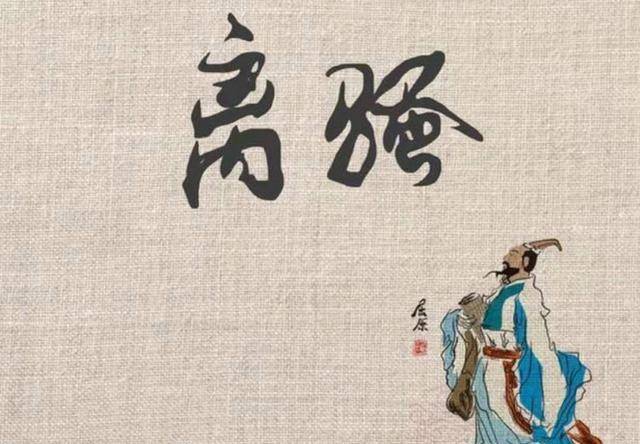 离骚
屈原